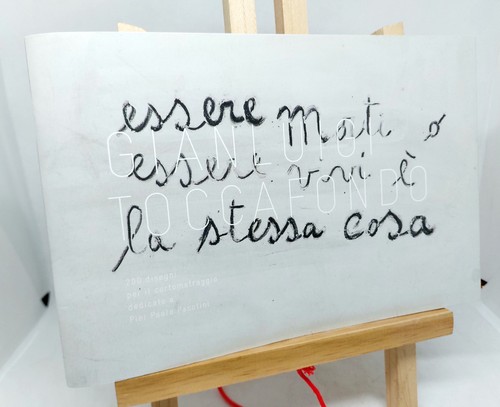 essere morti o
GIANLUIGI
essere vivi è
TOCCAFONDO
la stessa cosa
disegni
per il cortometraggio
dedicato a
Pier Paolo Pasolini